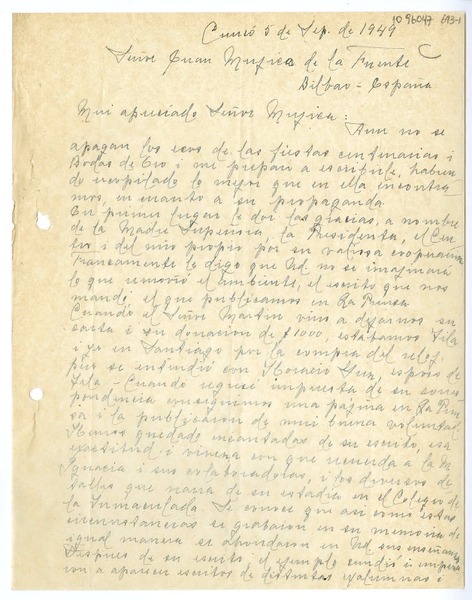 10 96047 693-1
Curicó 5 de Sep. de 1949
Señor Juan Mujica de la Fuente
Bilbao - España
Mui apreciado Señor Mujica:
Aun no se
apagan los ecos de las fiestas centenarias i
Bodas de Oro i me preparo a escribirle, habien
do recopilado lo mejor que en ella encontra
mos, en cuanto a su propaganda.
En primer lugar le doi las gracias, a nombre
de la Madre Superiora, la Presidenta, el Cen
tro i del mio propio por su valiosa cooperación
Francamente le digo que Ud. no se imaginará
lo que removió el ambiente, el escrito que nos
mandó, el que publicamos en La Prensa
Cuando el Señor Martin vino a dejarnos su
carta i su donacion de $1000, estabamos Fila
i yo en Santiago por la compra del reloj,
pero se entindió con Horacio, esposo de
Fila - Cuando regresé impuesta de su corres
pondencia conseguimos una página en La Pren
sa i la publicacion de mui buena voluntad
Hemos quedado encantadas de su escrito, esa
exactitud i viveza con que recuerda a la M.
Ignacia i sus colaboradoras, i los diversos de
talles que narra de su estadia en el Colegio de
la Inmaculada. Se conoce que asi como estas
circunstancias se grabaron en su memoria de
igual manera se ahondaron en Ud. sus enseñanzas
Despues de su escrito, el ejemplo cundió i empeza
ron a aparecer escritos de distintas exalumnas i